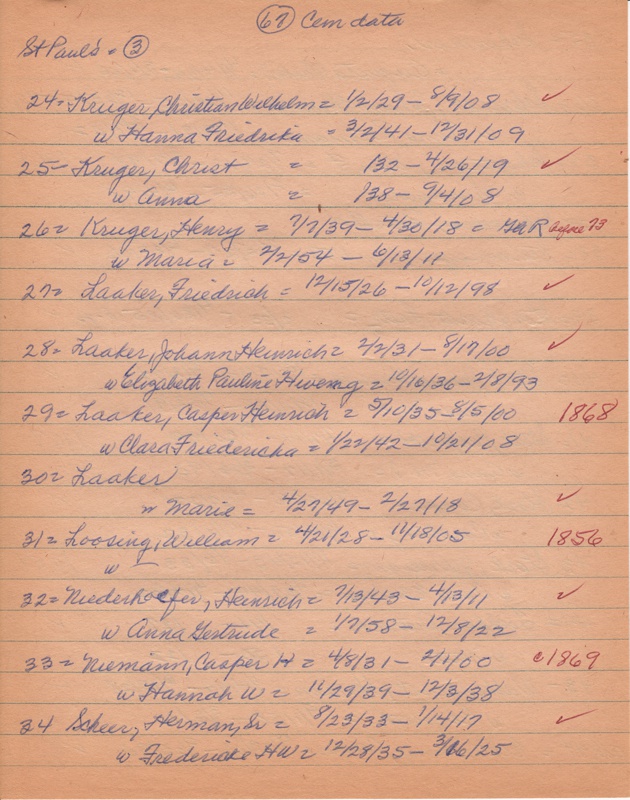 (67) Cem data
St Paul's = (3)
24= Kruger, Christian Wilhelm = 1/2/29 - 8/9/08 ✓
w Hanna Friedrika = 3/2/41 - 12/31/09
25- Kruger, Christ = /32 - 4/26/19 ✓
w Anna = /38 - 9/4/08
26= Kruger, Henry = 7/7/39 - 4/30/18 = R 73
w Maria = 2/2/54 - 6/13/11
27= Laaker, Friedrich = 12/15/26 - 10/12/98 ✓
28= Laaker, Johann Heinrich = 2/2/31 - 8/17/00 ✓
w Elizabeth Pauline = 10/16/36 - 2/8/93
29= Laaker, Casper Heinrich = 5/10/35 - 8/5/00 1868
w Clara Friedericka = 1/22/42 - 10/21/08
30= Laaker
w Marie = 4/27/49 - 2/27/18 ✓
31= Loosing, William = 4/21/28 - 11/18/05 1856
w -
32= Niederhoefer, Heinrich = 7/13/43 - 4/13/11 ✓
w Anna Gertrude = 1/7/58 - 12/8/22
33= Niemann, Casper H = 4/8/31 - 2/1/00 c1869
w Hannah W = 11/29/39 - 12/3/38
34 Scheer, Herman, Sr = 8/23/33 - 1/14/17 ✓
w Fredericke HW = 12/28/35 - 3/16/25